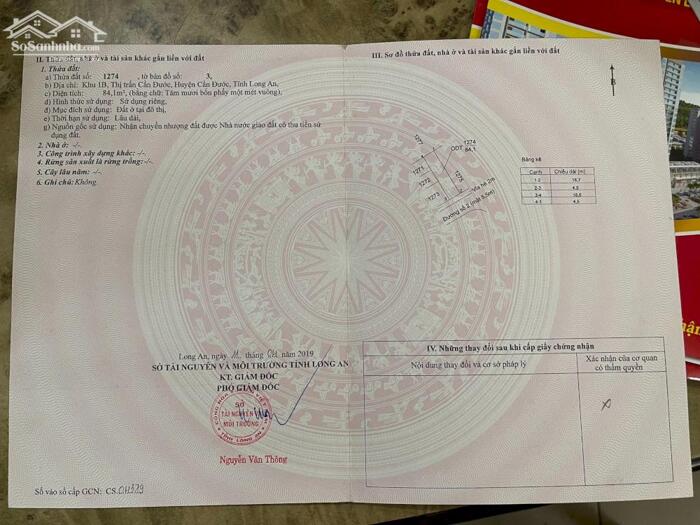 SoSanhnha.com
II. Thửa đất, nhà ở và tài sản khác gắn liền với đất
1. Thửa đất:
a) Thửa đất số: 1274 , tờ bản đồ số: 3,
b) Địa chỉ: Khu 1B, Thị trấn Cần Đước, Huyện Cần Đước, Tỉnh Long An,
c) Diện tích: 84,1m², (bằng chữ: Tám mươi bốn phẩy một mét vuông),
d) Hình thức sử dụng: Sử dụng riêng,
đ) Mục đích sử dụng: Đất ở tại đô thị,
e) Thời hạn sử dụng: Lâu dài,
g) Nguồn gốc sử dụng: Nhận chuyển nhượng đất được Nhà nước giao đất có thu tiền sử
dụng đất.
2. Nhà ở: -/-
3. Công trình xây dựng khác: -/-
4. Rừng sản xuất là rừng trồng: -/-
5. Cây lâu năm: -/-
6. Ghi chú: Không.
Long An, ngày tháng năm 2019
SỞ TÀI NGUYÊN VÀ MÔI TRƯỜNG TỈNH LONG AN
KT. GIÁM ĐỐC
PHÓ GIÁM ĐỐC
SỞ
TÀI NGUYÊN VÀ
MÔI TRƯỜNG
TỈNH LONG AN
Nguyễn Văn Thông
Số vào sổ cấp GCN: CS.
III. Sơ đồ thửa đất, nhà ở và tài sản khác gắn liền với đất
B
1277
1271
1272
1273
ODT 1274
84,1
1275
Vỉa hè 2m
Đường số 2 (mặt 5,5m)
Bảng kê
Cạnh Chiều dài (m)
1-2
2-3 4,5
3-4
4-1 4,5
IV. Những thay đổi sau khi cấp giấy chứng nhận
Nội dung thay đổi và cơ sở pháp lý
Xác nhận của cơ quan
có thẩm quyền